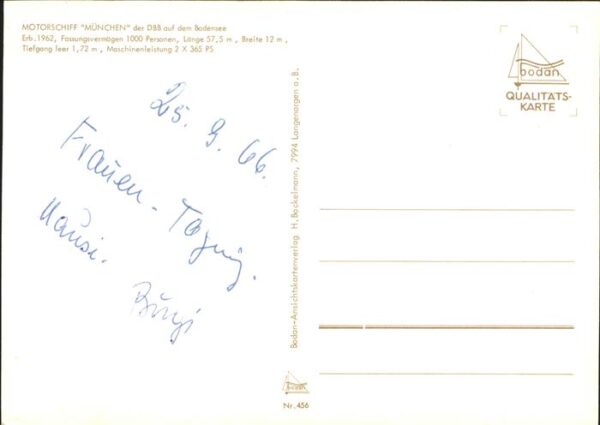 MOTORSCHIFF "MÜNCHEN" der DBB auf dem Bodensee
Erb.1962, Fassungsvermögen 1000 Personen, Länge 57,5 m , Breite 12 m ,
Tiefgang leer 1,72 m , Maschinenleistung 2 X 365 PS
25. 9. 66.
Frauen - Tagung.
Bodan-Ansichtskartenverlag H. Bockelmann, 7994 Langenargen a. B.
bodan
QUALITÄTS-
KARTE
bodan
Nr. 456